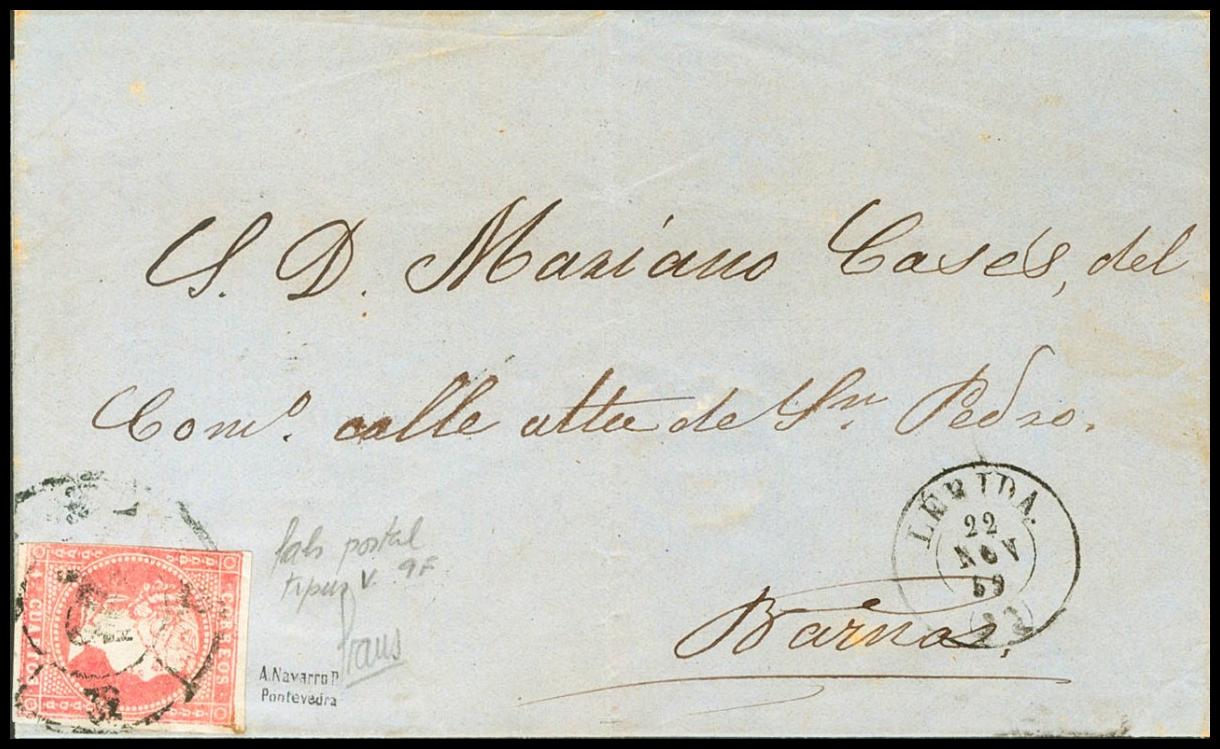 S. D. Mariano Casés, del
Com.º calle alta de Sn. Pedro.
Barna,
LÉRIDA.
22
NOV
59
fals postal
tipus V. 9F
Graus
A. Navarro P
Pontevedra
CORREOS.
4 CUARTOS